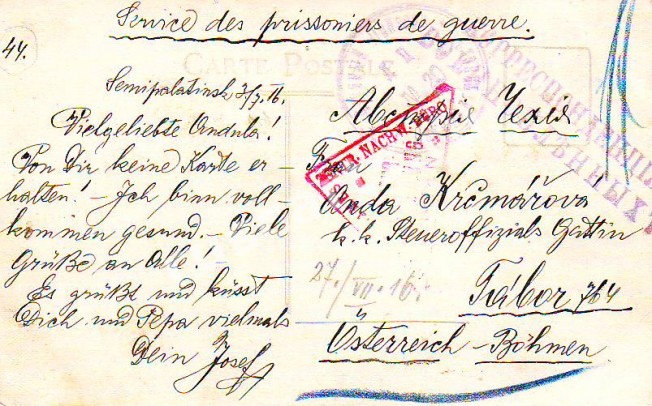 Service des prissoniers de guerre.
44.
CARTE POSTALE
Semipalatinsk 3/7.16.
Vielgeliebte Andula!
Von Dir keine Karte er-
halten! – Ich binn voll-
kommen gesund. – Viele
Grüße an Alle! –
Es grüßt und küsst
Dich und Pepa vielmals
Dein Josef
Австрія Чехія
Frau
Anda Krčmářová
k. k. Steueroffizials Gattin
27./VII. 16.
Tábor 764
Österreich – Böhmen.
NACHW.